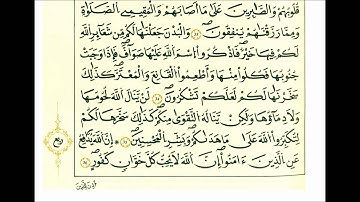 قُلُوبُهُمْ وَالصَّابِرِينَ عَلَىٰ مَا أَصَابَهُمْ وَالْمُقِيمِي الصَّلَوٰةِ
وَمِمَّا رَزَقْنَاهُمْ يُنفِقُونَ ﴿٣٥﴾ وَالْبُدْنَ جَعَلْنَاهَا لَكُم مِّن شَعَائِرِ اللَّهِ
لَكُمْ فِيهَا خَيْرٌ فَاذْكُرُوا اسْمَ اللَّهِ عَلَيْهَا صَوَافَّ فَإِذَا وَجَبَتْ
جُنُوبُهَا فَكُلُوا مِنْهَا وَأَطْعِمُوا الْقَانِعَ وَالْمُعْتَرَّ كَذَٰلِكَ
سَخَّرْنَاهَا لَكُمْ لَعَلَّكُمْ تَشْكُرُونَ ﴿٣٦﴾ لَن يَنَالَ اللَّهَ لُحُومُهَا
وَلَا دِمَاؤُهَا وَلَٰكِن يَنَالُهُ التَّقْوَىٰ مِنكُمْ كَذَٰلِكَ سَخَّرَهَا لَكُمْ
لِتُكَبِّرُوا اللَّهَ عَلَىٰ مَا هَدَاكُمْ وَبَشِّرِ الْمُحْسِنِينَ ﴿٣٧﴾ إِنَّ اللَّهَ يُدَافِعُ
عَنِ الَّذِينَ ءَامَنُوا إِنَّ اللَّهَ لَا يُحِبُّ كُلَّ خَوَّانٍ كَفُورٍ ﴿٣٨﴾